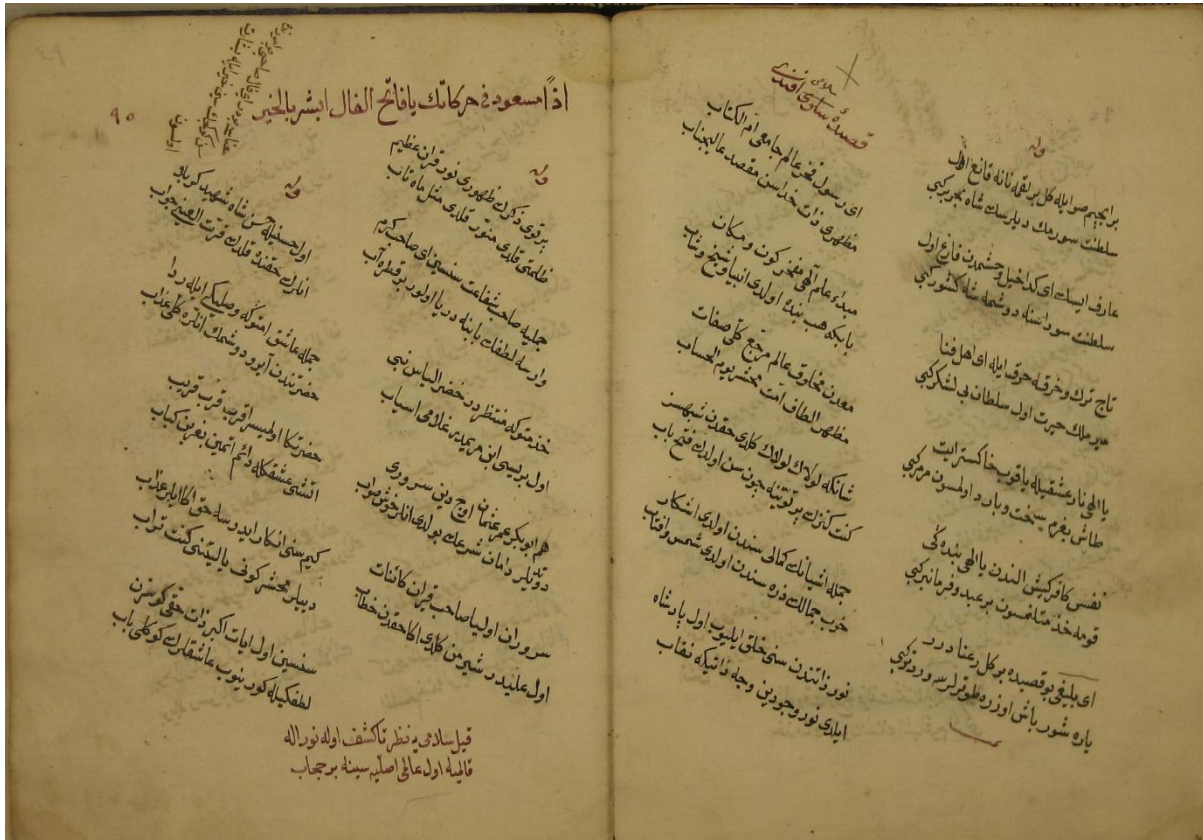 وله
بر ایچیم صو ایله کل بر لقمه نانه قانع اول
سلطنت سورمك دیلرسك شاه بحر بر کبی
عارف ایسك ای کدا خیل و حشمدن فارغ اول
سلطنت سوداسنه دوشمه شاه کشور کبی
تاج ترك و خرقه حرق ایله ای اهل فنا
میر ملك حیرت اول سلطان بی لشکر کبی
یا الهی نار عشقیله یاقوب خاکستر ایت
طاش بغرم سخت و بارد اولمسون مرمر کبی
نفس کافر کیش الندن یا الهی بنده کی
قومه خدمتلنمسون بر عبد فرمانبر کبی
ای بلیغی بو قصیده بر کل رعنا درر
یاره شور باش اوزره طوترلرسه ورد تر کبی
قصیدۀ سلوی افندی
سلامی
ای رسول فخر عالم جامع ام الکتاب
مظهری ذات خداسن مقصد عالیجناب
مبداء علم الهی مفخر کون و مکان
بابکه هب بنده اولدی انبیا و شیخ و شاب
معدن مخلوق عالم مرجع کل صفات
مظهر الطاف امت محشر یوم الحساب
شانکه لولاك لولاك کلدی حقدن شبهسز
کنت کنزك پرتوینه چون سن اولدك فتح باب
جمله اشیانك کمالی سندن اولدی اشکار
خوب جمالك ذره سندن اولدی شمس و افتاب
نور ذاتندن سنی خلق ایلیوب اول پادشاه
ایلدی نور وجودین وجه ذاتیکه نقاب
اذاً مسعود فی حرکاتك یا فاتح الفال ابشر بالخیر
٩٥
وله
پرتوی ذکرك ظهوری نور قران عظیم
ظلمتی قلدی منور قلدی مثل ماه تاب
جملیه صاحب شفاعت سنسن ای صاحب کرم
وارسه لطفك بابنه دریا اولور بر قطره آب
خدمتوکه منتظردر خضر الیاس نبی
اول بریسی ابن مریمدر غلامی اسیاب
هم ابوبکر عمر عثمان اوچ دین سروری
دوتدیلر دامان شرعك بولدی انلر خوش صواب
سروران اولیا صاحب قران کائنات
اول علیدر شیر من کلدی اکا حقدن خطاب
وله
اول حسنیله حسن شاه شهید کربلا
انلرك حقنده قلدك قرت العینی جواب
جمله عاشق امتوکه وصلیکم ایله ردا
حضرتندن آیرو دوشمك انلره کلی عذاب
حضرتکا اولمیسر اقرب قرب قریب
اتشی عشقکله دائم اتمین بغرین کباب
کیم سنی انکار ایدرسه حق اکا ایلر عذاب
دییلر محشر کونی یا لیتنی کنت تراب
سنسن اول ایات اکبر ذات حقی کوسترن
لطفکیله کورینوب عاشقلرك کوکلی باب
قیل سلامی یه نظر تا کشف اوله نور اله
قالمیه اول عالی اصلیه سینه بر حجاب